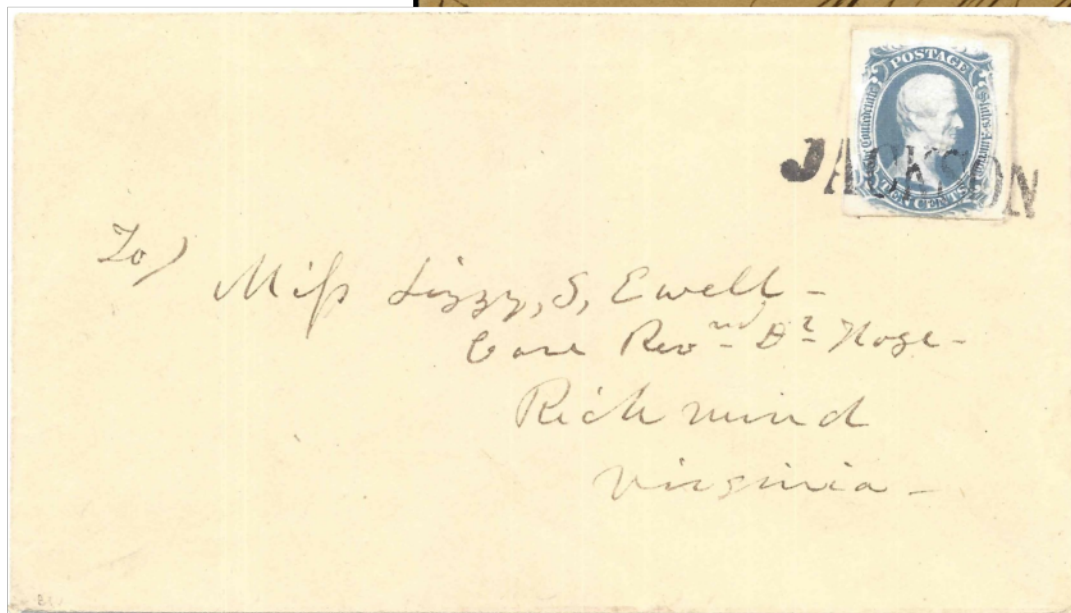 POSTAGE
Confederate States America
TEN CENTS
JACKSON
To/ Miss Lizzy, S, Ewell -
Care Revnd Dr Hoge -
Richmond
Virginia -